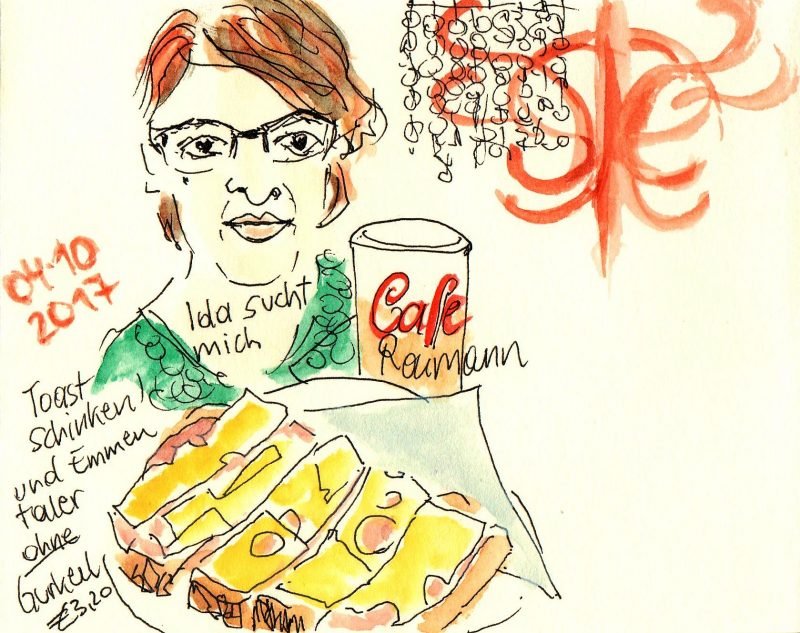 04.10
2017
Ida sucht
mich
Cafe
Reumann
Toast
schinken
und Emmen
taler
ohne
Gurkerl
€3,20